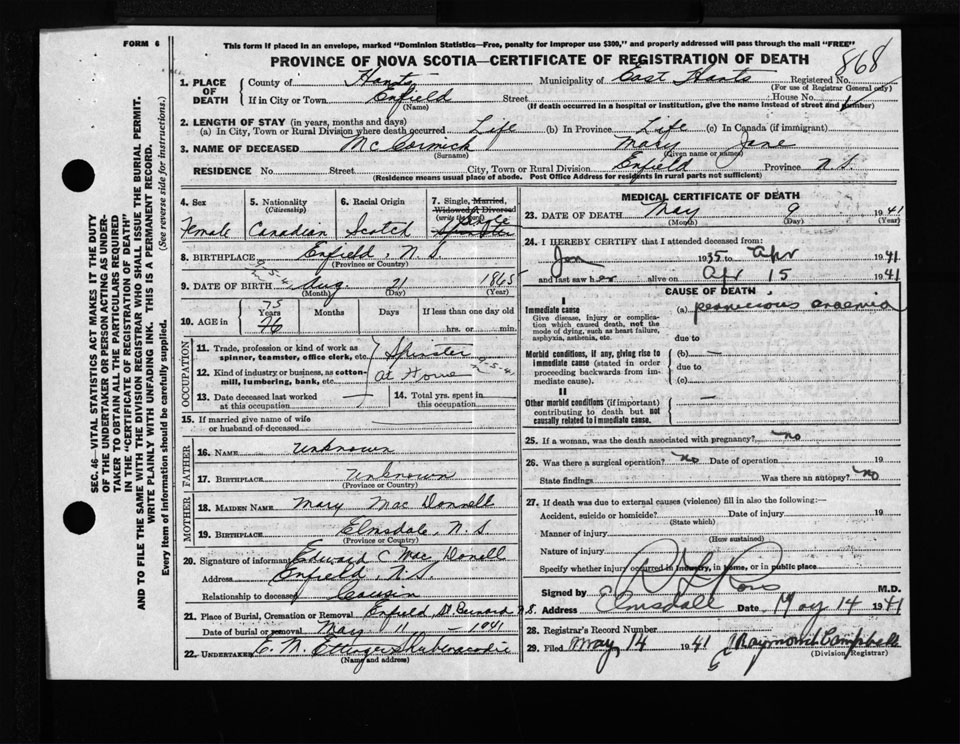 FORM 6
This form if placed in an envelope, marked "Dominion Statistics—Free, penalty for improper use $300," and properly addressed will pass through the mail "FREE"
PROVINCE OF NOVA SCOTIA—CERTIFICATE OF REGISTRATION OF DEATH
868
1. PLACE OF DEATH
County of Hants Municipality of East Hants Registered No.
(For use of Registrar General only)
If in City or Town Enfield Street House No.
(Name) (If death occurred in a hospital or institution, give the name instead of street and number)
2. LENGTH OF STAY (in years, months and days)
(a) In City, Town or Rural Division where death occurred Life (b) In Province Life (c) In Canada (if immigrant)
3. NAME OF DECEASED McCormick Mary Jane
(Surname) (Given name or names)
RESIDENCE No. Street City, Town or Rural Division Enfield Province N.S.
(Residence means usual place of abode. Post Office Address for residents in rural parts not sufficient)
4. Sex
Female
5. Nationality
(Citizenship)
Canadian
6. Racial Origin
Scotch
7. Single, Married, Widowed or Divorced
(write the word)
Single
Spinster
8. BIRTHPLACE Enfield, N.S.
(Province or Country)
9. DATE OF BIRTH Aug. 21 1865
(Month) (Day) (Year)
10. AGE in
75
Years Months Days If less than one day old
76 hrs. or min.
OCCUPATION
11. Trade, profession or kind of work as spinner, teamster, office clerk, etc. Spinster
12. Kind of industry or business, as cotton-mill, lumbering, bank, etc. At Home
13. Date deceased last worked at this occupation
14. Total yrs. spent in this occupation
15. If married give name of wife or husband of deceased
FATHER
16. NAME Unknown
17. BIRTHPLACE Unknown
(Province or Country)
MOTHER
18. MAIDEN NAME Mary MacDonnell
19. BIRTHPLACE Elmsdale, N.S.
(Province or Country)
20. Signature of informant Edward C MacDonell
Address Enfield, N.S.
Relationship to deceased Cousin
21. Place of Burial, Cremation or Removal Enfield St. Bernard N.S.
Date of burial or removal May 11 - 1941
22. UNDERTAKER E. M. Ettinger Shubenacadie
(Name and address)
MEDICAL CERTIFICATE OF DEATH
23. DATE OF DEATH May 9 1941
(Month) (Day) (Year)
24. I HEREBY CERTIFY that I attended deceased from:
Jan 1935 to Apr 1941
and last saw her alive on Apr 15 1941
CAUSE OF DEATH
I
Immediate cause (a) pernicious anaemia
Give disease, injury or complication which caused death, not the mode of dying, such as heart failure, asphyxia, asthenia, etc.
due to
Morbid conditions, if any, giving rise to immediate cause (stated in order proceeding backwards from immediate cause).
(b) —
due to
(c)
II
Other morbid conditions (if important) contributing to death but not causally related to immediate cause. —
25. If a woman, was the death associated with pregnancy? no
26. Was there a surgical operation? no Date of operation 19
State findings Was there an autopsy? no
27. If death was due to external causes (violence) fill in also the following:—
Accident, suicide or homicide? Date of injury 19
(State which)
Manner of injury
(How sustained)
Nature of injury
Specify whether injury occurred in industry, in home, or in public place
Signed by M.D.
Address Elmsdall Date May 14 1941
28. Registrar's Record Number
29. Filed May 14 1941 Raymond Campbell
(Division Registrar)
SEC. 46—VITAL STATISTICS ACT MAKES IT THE DUTY
OF THE UNDERTAKER OR PERSON ACTING AS UNDER-
TAKER TO OBTAIN ALL THE PARTICULARS REQUIRED
IN THE "CERTIFICATE OF REGISTRATION OF DEATH"
AND TO FILE THE SAME WITH THE DIVISION REGISTRAR WHO SHALL ISSUE THE BURIAL PERMIT.
WRITE PLAINLY WITH UNFADING INK. THIS IS A PERMANENT RECORD.
Every item of information should be carefully supplied. (See reverse side for instructions.)